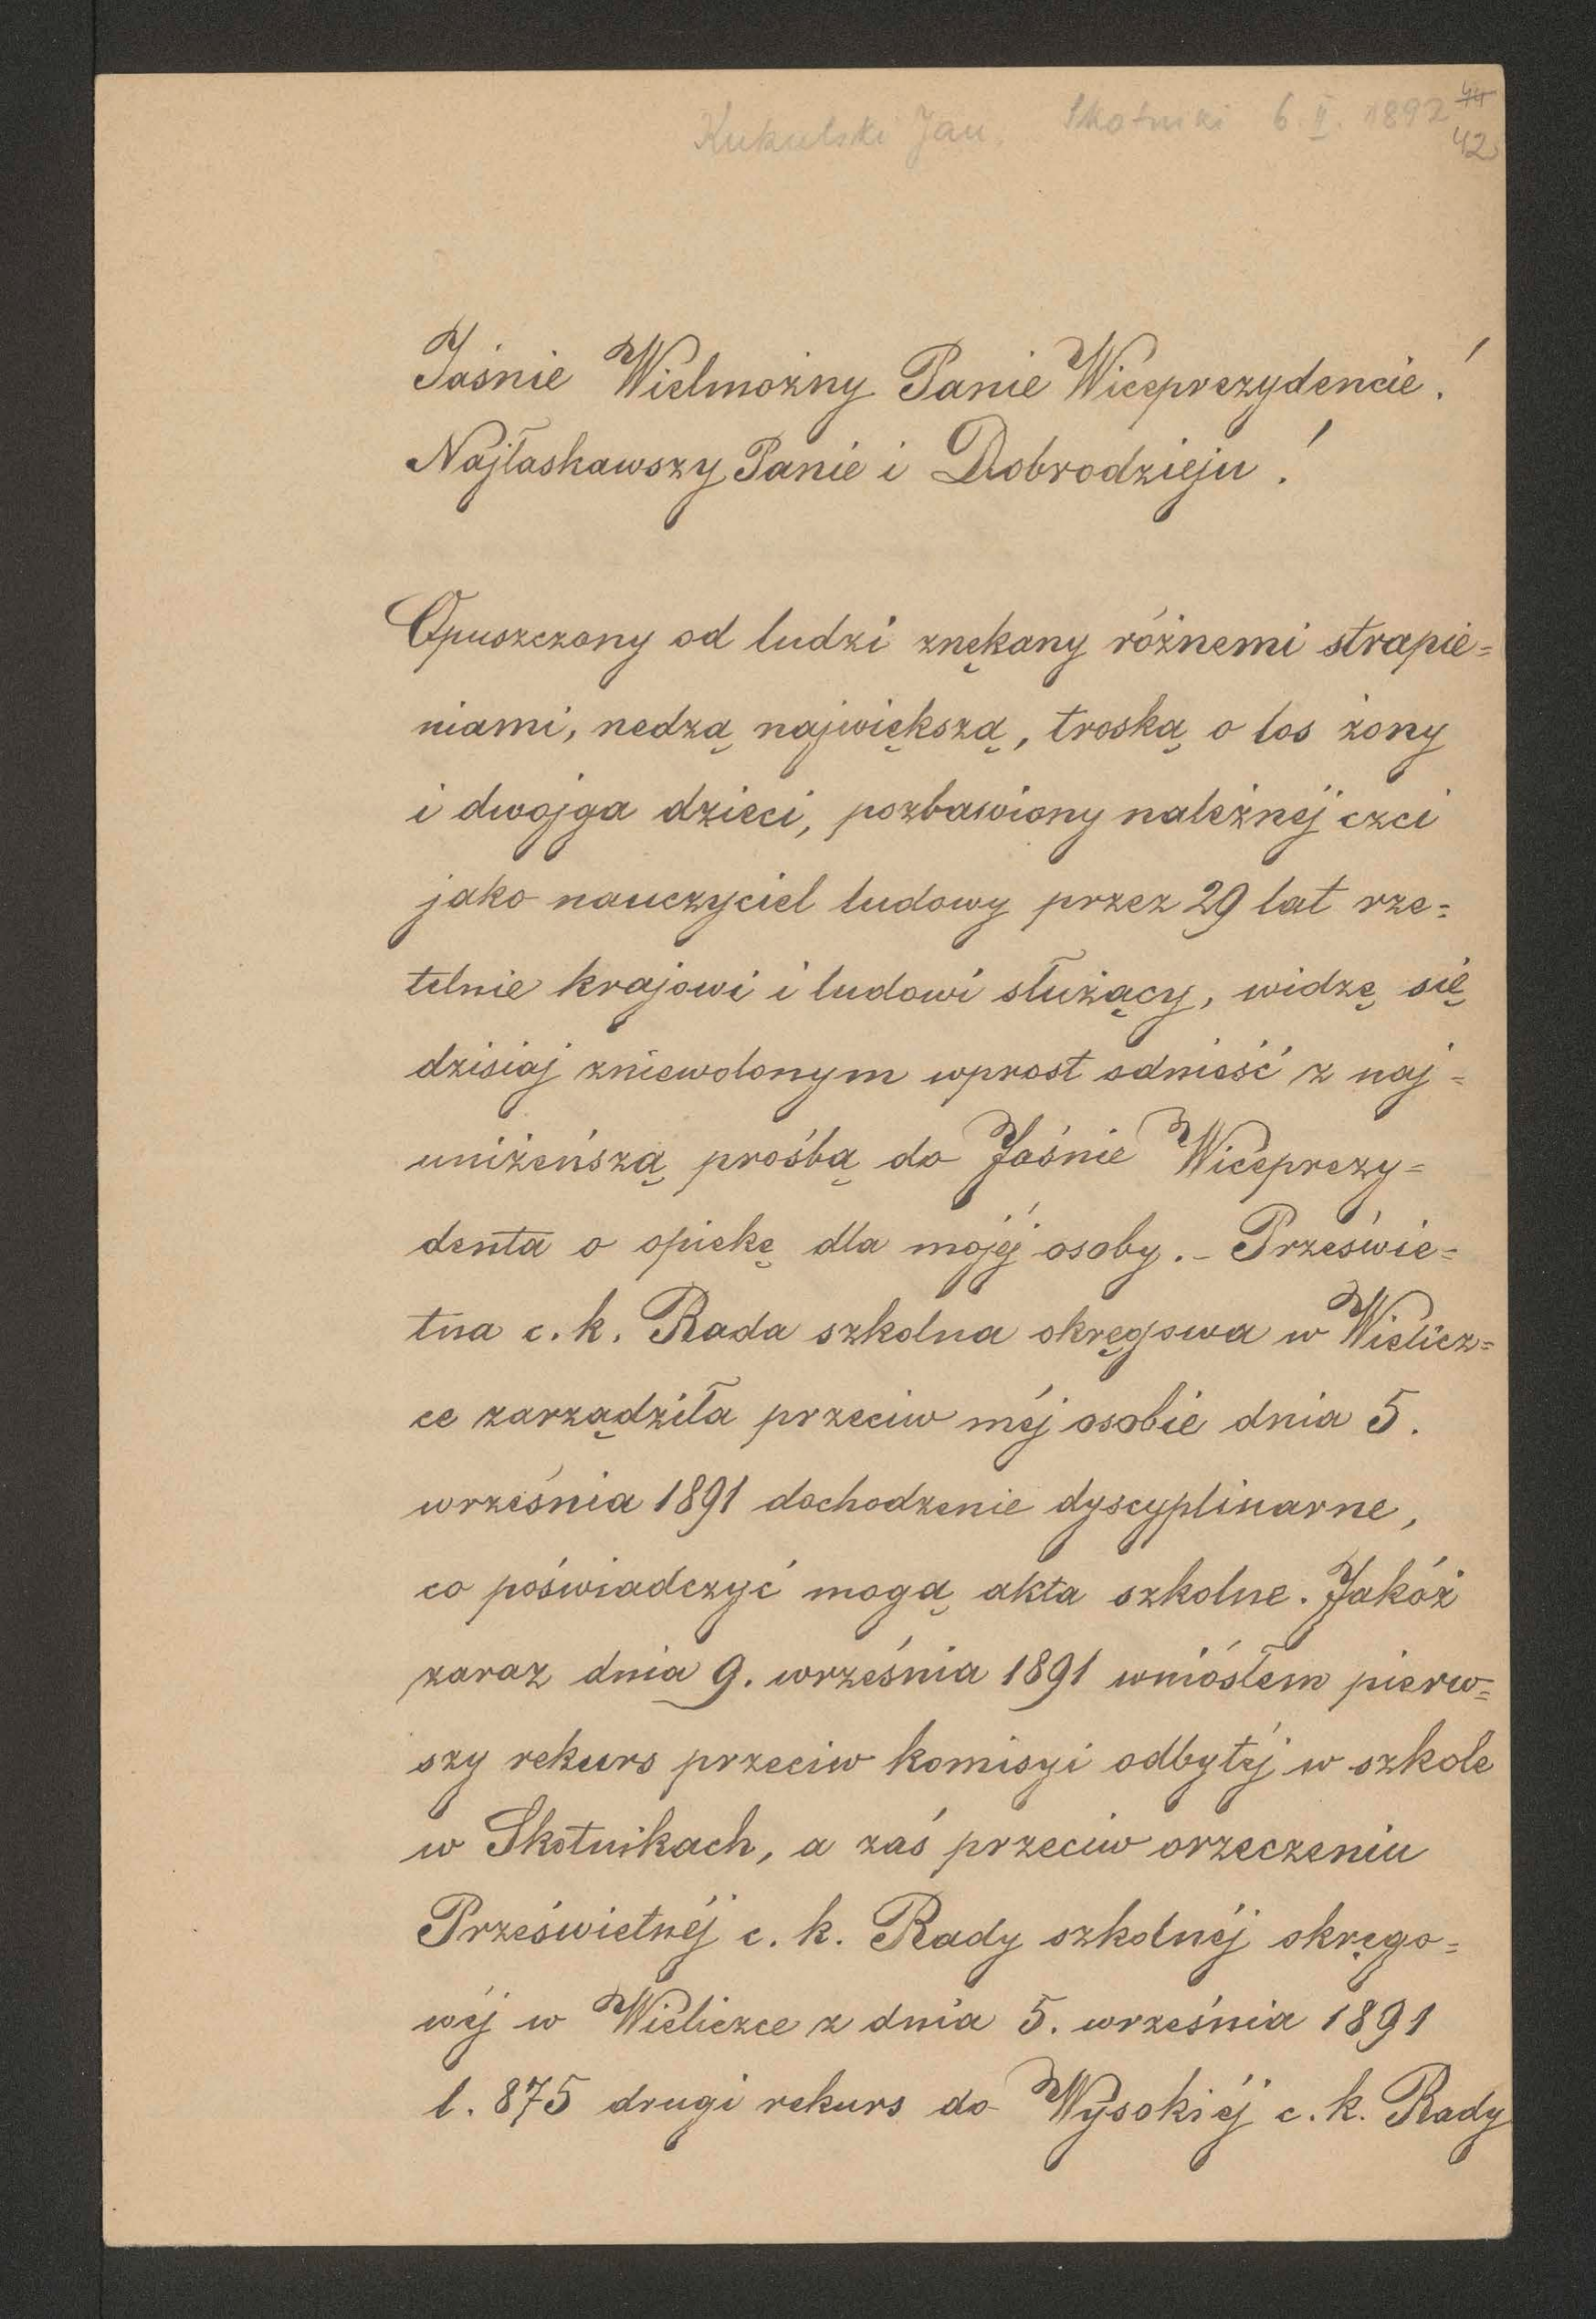 Kukulski Jan. Skotniki 6. II. 1892 44
42
Jaśnie Wielmożny Panie Wiceprezydencie!
Najłaskawszy Panie i Dobrodzieju!
Opuszczony od ludzi znękany różnemi strapie=
niami, nedzą największą, troską o los żony
i dwojga dzieci, pozbawiony należnéj czci
jako nauczyciel ludowy przez 29 lat rze=
telnie krajowi i ludowi służący, widzę się
dzisiaj zniewolonym wprost odnieść z naj=
uniżeńszą prośbą do Jaśnie Wiceprezy=
denta o opiekę dla mojéj osoby. - Prześwie=
tna c. k. Rada szkolna okręgowa w Wielicz=
ce zarządziła przeciw méj osobie dnia 5.
września 1891 dochodzenie dyscyplinarne,
co poświadczyć mogą akta szkolne. Jakóż
zaraz dnia 9. września 1891 wniósłem pierw=
szy rekurs przeciw komisyi odbytéj w szkole
w Skotnikach, a zaś przeciw orzeczeniu
Prześwietnéj c. k. Rady szkolnéj okręgo=
wéj w Wieliczce z dnia 5. września 1891
l. 875 drugi rekurs do Wysokiéj c. k. Rady